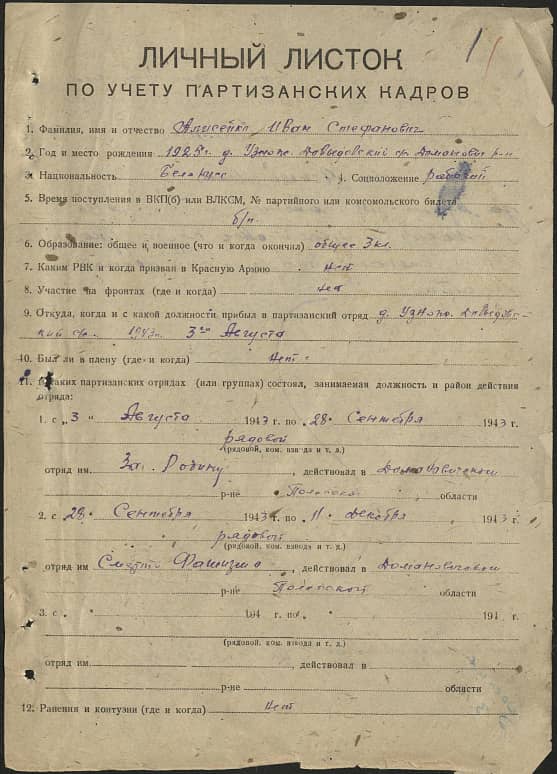 ЛИЧНЫЙ ЛИСТОК
ПО УЧЕТУ ПАРТИЗАНСКИХ КАДРОВ
1. Фамилия, имя и отчество Алисейко Иван Стефанович
2. Год и место рождения д. Давыдовский
3. Национальность белорусс 4. Соцположение рабочий
5. Время поступления в ВКП(б) или ВЛКСМ, № партийного или комсомольского билета
б/п.
6. Образование: общее и военное (что и когда окончил) общее 3 кл.
7. Каким РВК и когда призван в Красную Армию нет
8. Участие на фронтах (где и когда) нет
9. Откуда, когда и с какой должности прибыл в партизанский отряд д. Давыдов-
ский 1943г. 3го Августа
10. Был ли в плену (где и когда) нет
11. В каких партизанских отрядах (или группах) состоял, занимаемая должность и район действия
отряда:
1. с „3" Августа 1943 г. по „28" Сентября 1943 г.
рядовой
(рядовой, ком. взвода и т. д.)
отряд им. За Родину, действовал в Домановичском
р-не Полесской области
2. с 28 Сентября 1943 г. по 11 декабря 1943 г.
рядовый
(рядовой, ком. взвода и т. д.)
отряд им Смерть Фашизму, действовал в Домановичском
р-не Полесской области
3. с 194 г. по 194 г.
(рядовой, ком. взвода и т. д.)
отряд им., действовал в
р-не области
12. Ранения и контузии (где и когда) нет